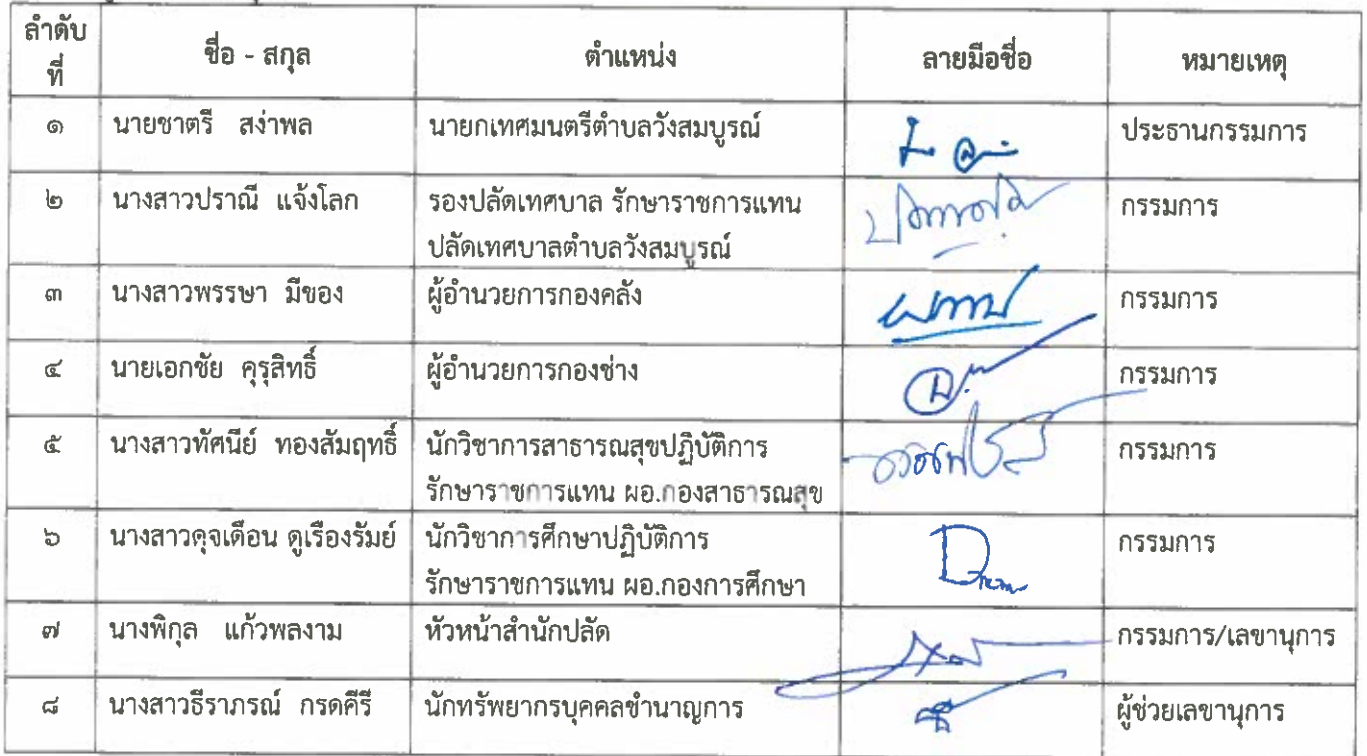 ลำดับ
ที่
ชื่อ - สกุล
ตำแหน่ง
ลายมือชื่อ
หมายเหตุ
๑
นายชาตรี สง่าพล
นายกเทศมนตรีตำบลวังสมบูรณ์
ประธานกรรมการ
๒
นางสาวปราณี แจ้งโลก
รองปลัดเทศบาล รักษาราชการแทน
ปลัดเทศบาลตำบลวังสมบูรณ์
กรรมการ
๓
นางสาวพรรษา มีของ
ผู้อำนวยการกองคลัง
กรรมการ
๔
นายเอกชัย คุรุสิทธิ์
ผู้อำนวยการกองช่าง
กรรมการ
๕
นางสาวทัศนีย์ ทองสัมฤทธิ์
นักวิชาการสาธารณสุขปฏิบัติการ
รักษาราชการแทน ผอ.กองสาธารณสุข
กรรมการ
๖
นางสาวดุจเดือน ดูเรืองรัมย์
นักวิชาการศึกษาปฏิบัติการ
รักษาราชการแทน ผอ.กองการศึกษา
กรรมการ
๗
นางพิกุล แก้วพลงาม
หัวหน้าสำนักปลัด
กรรมการ/เลขานุการ
๘
นางสาวธีราภรณ์ กรดคีรี
นักทรัพยากรบุคคลชำนาญการ
ผู้ช่วยเลขานุการ